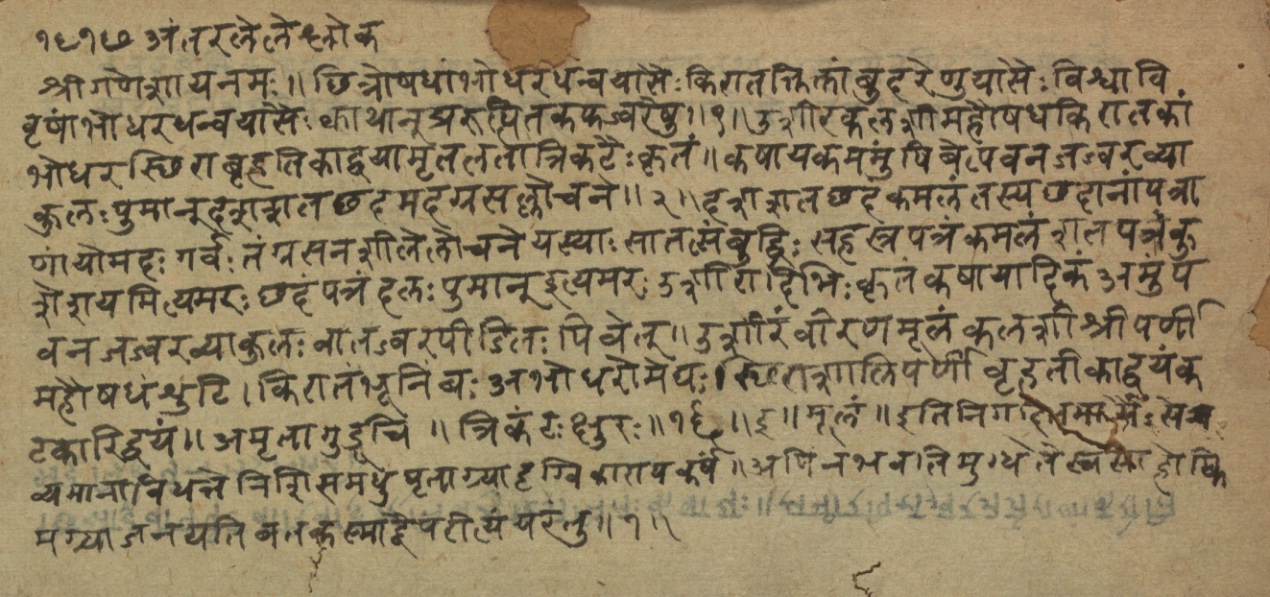 १८१७ अंतरलेले श्लोक
श्रीगणेशायनमः॥ छिन्नोषधांभोधरधन्वयासैः किराततिक्तांबुहरेणुयासैः विश्वावि
वृषांभोधरधन्वयासैः क्वाथानृप्रकफज्वरेषु॥१॥ उशीरकलशीमहौषधकिरातकां
भोधरस्थिराबृहतिकाद्वयामृतलतात्रिकंटैः कृतं॥ कषायकममुं पिबेत्पवनजज्वरव्या
कुलः पुमान् छदमदग्रसल्लोचने॥२॥ कमलं तस्य छदानां पत्रा
णां योमदः गर्वः तं ग्रसनशीलेलोचने यस्याः सा तत्संबुद्धिः सहस्त्रंपत्रं कमलं शतपत्रं कु
शेशयमित्यमरः छदं पत्रं दलः पुमान् इत्यमरः उशीरादिभिः कृतं कषायादिकं अमुं प
वनजज्वरव्याकुलः वातज्वरपीडितः पिबेत्॥ उशीरं वीरणमूलं कलशी श्रीपर्णी
महौषधं शुटि। किरातं भूनिबः अंभोधरोमेघः। स्थिराशालिपर्णी बृहतीकाद्वयं कं
टकारिद्वयं॥ अमृता गुडूचि॥ त्रिकंटः क्षुरः॥१६॥ इ॥ मूलं॥ इतिनिगदि सेव्य
व्यमानाविधत्ते निशिसमधु घृताग्र्यादृग्विकारापकर्षं॥ अपिनभवति मुग्धे
मग्र्याजनयति बत कस्माद्वैपरीत्यं परंतु॥१॥